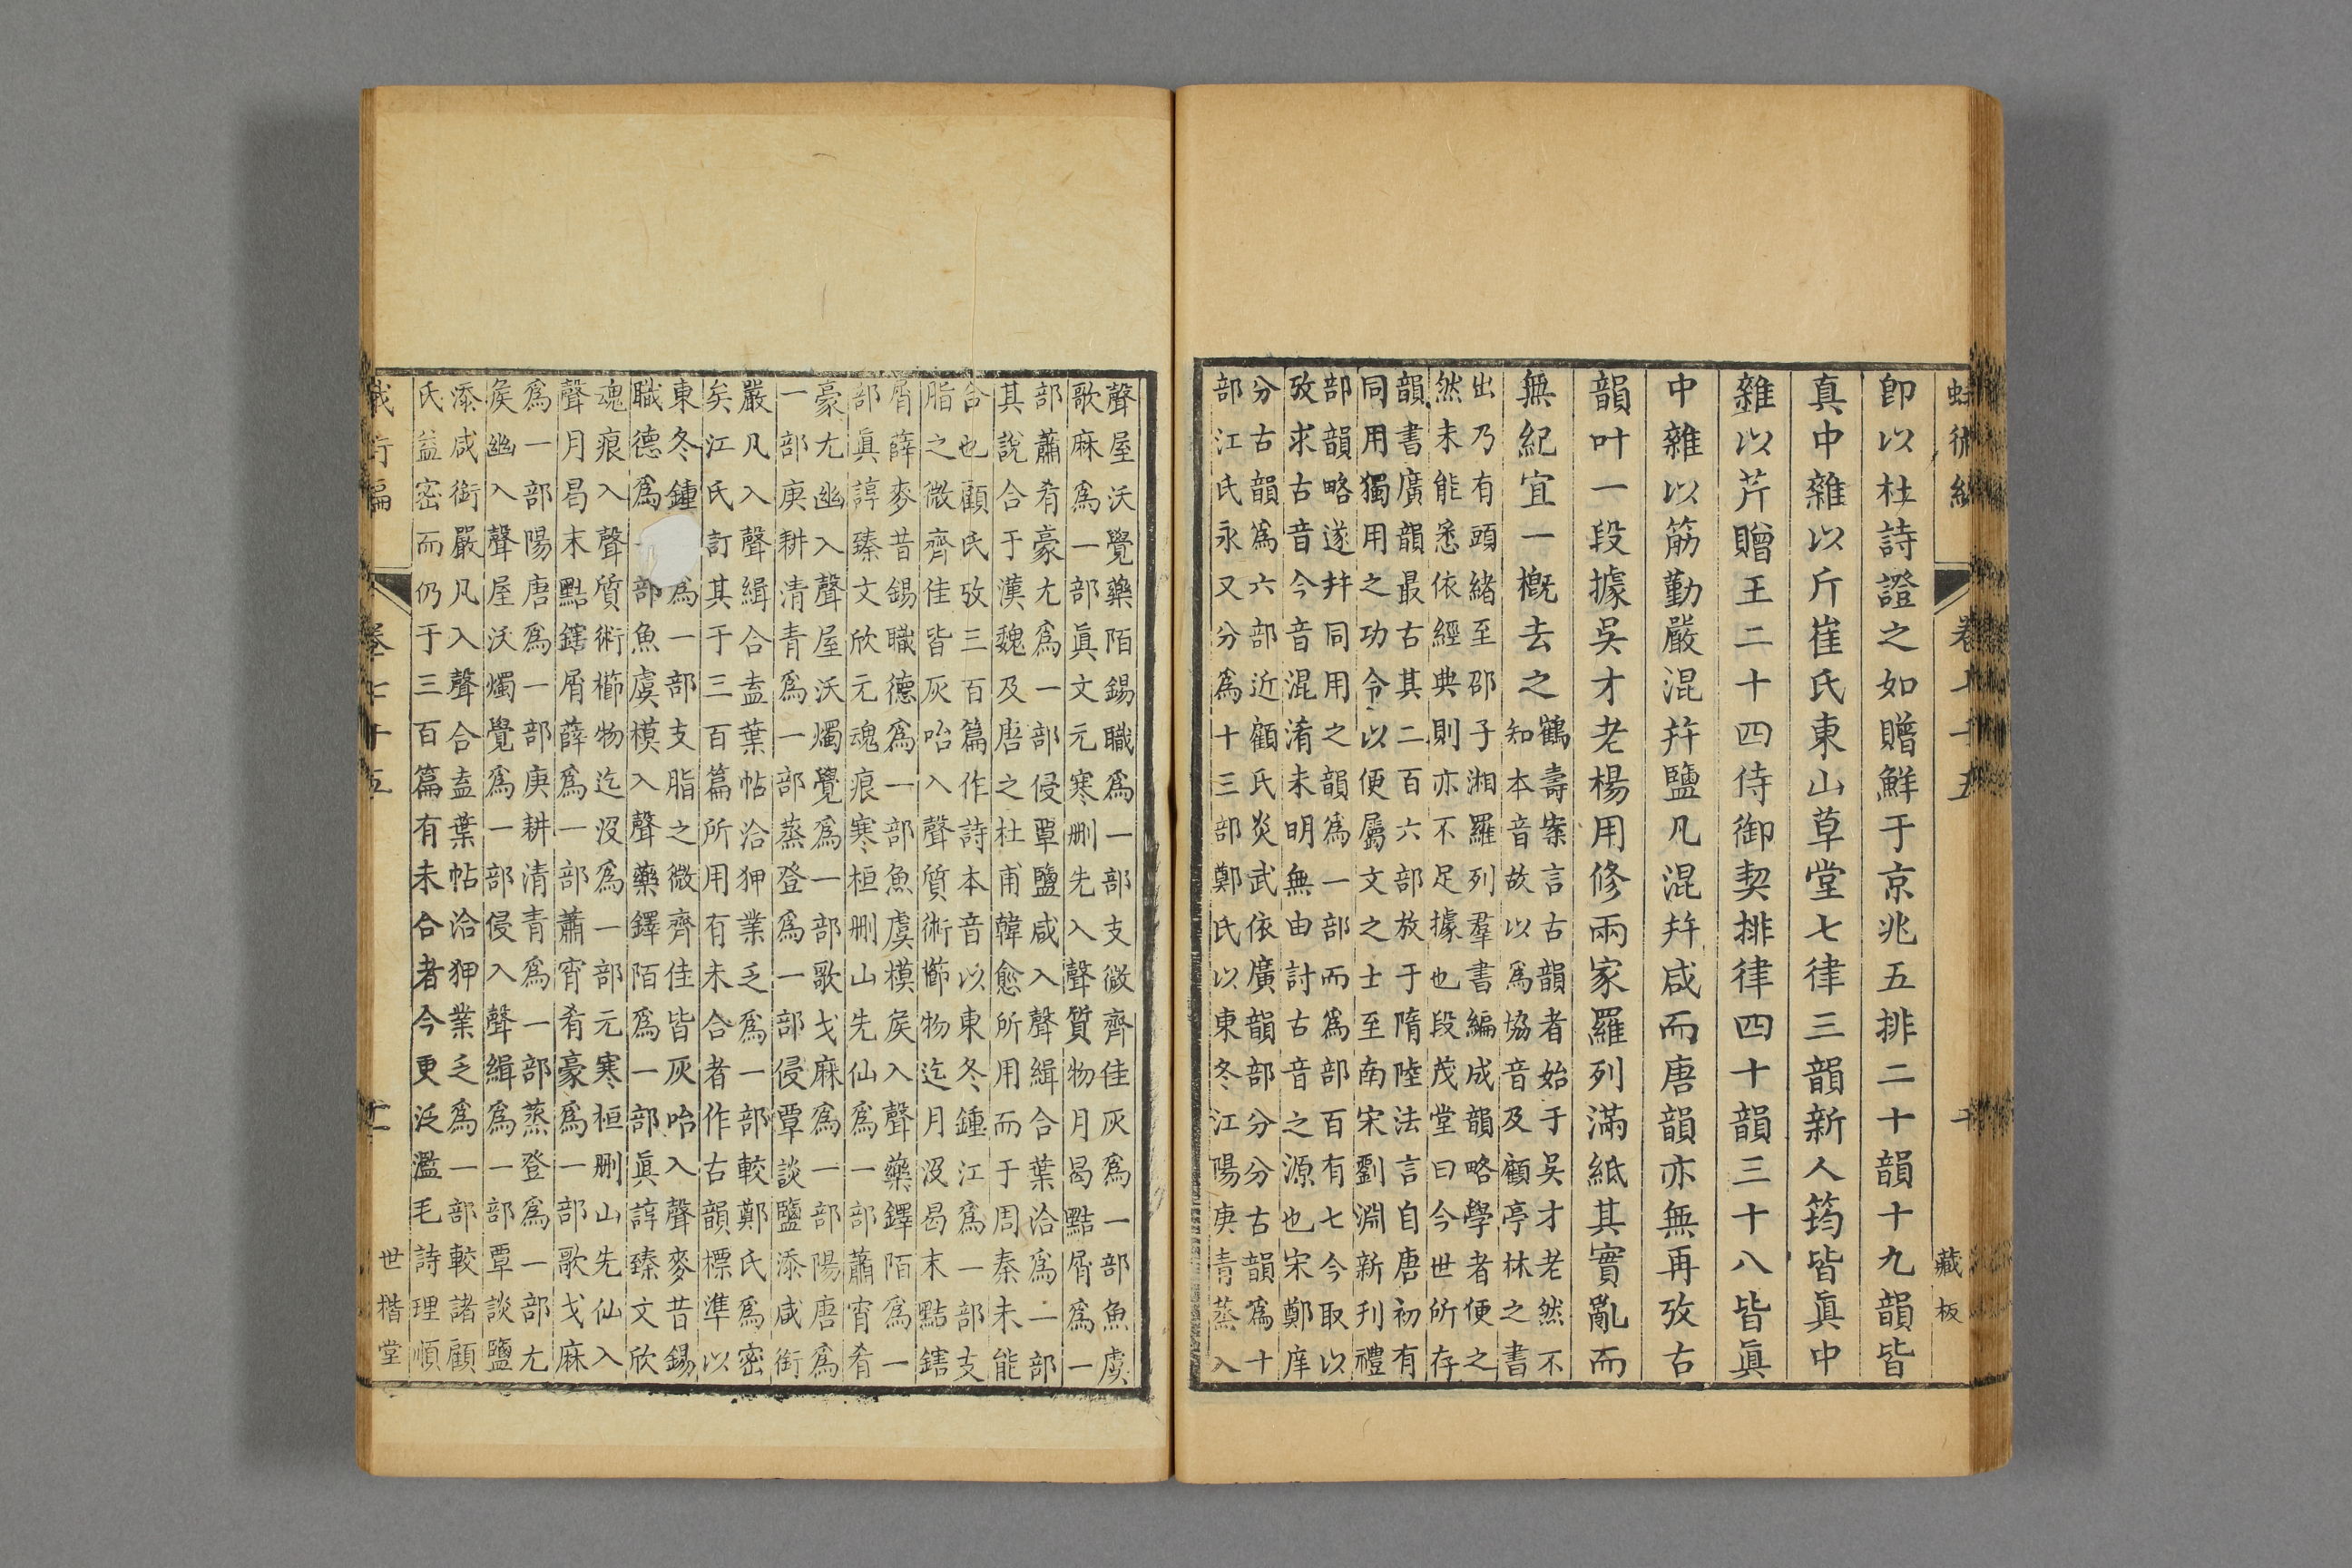 卷七十五
十
藏板
即以杜詩證之如贈鮮于京兆五排二十韻十九韻皆
真中雜以斤崔氏東山草堂七律三韻新人筠皆眞中
雜以芹贈王二十四侍御契排律四十韻三十八皆眞
中雜以筋勤嚴混幷鹽凡混幷咸而唐韻亦無再攷古
韻叶一段據吳才老楊用修兩家羅列滿紙其實亂而
無紀宜一槪去之
鶴壽案言古韻者始于吳才老然不
知本音故以爲協音及顧亭林之書
出乃有頭緒至邵子湘羅列羣書編成韻略學者便之
然未能悉依經典則亦不足據也段茂堂曰今世所存
韻書廣韻最古其二百六部放于隋陸法言自唐初有
同用獨用之功令以便屬文之士至南宋劉淵新刊禮
部韻略遂幷同用之韻爲一部而爲部百有七今取以
攷求古音今音混淆未明無由討古音之源也宋鄭庠
分古韻爲六部近顧氏炎武依廣韻部分分古韻爲十
部江氏永又分爲十三部鄭氏以東冬江陽庚靑蒸入
聲屋沃覺藥陌錫職爲一部支微齊佳灰爲一部魚虞
歌麻爲一部眞文元寒刪先入聲質物月曷黠屑爲一
部蕭肴豪尤爲一部侵覃鹽咸入聲緝合葉洽爲一部
其說合于漢魏及唐之杜甫韓愈所用而于周秦未能
合也顧氏攷三百篇作詩本音以東冬鍾江爲一部支
脂之微齊佳皆灰咍入聲質術櫛物迄月沒曷末黠鎋
屑薛麥昔錫職德爲一部魚虞模矦入聲藥鐸陌爲一
部眞諄臻文欣元魂痕寒桓刪山先仙爲一部蕭宵肴
豪尤幽入聲屋沃燭覺爲一部歌戈麻爲一部陽唐爲
一部庚耕清青爲一部蒸登爲一部侵覃談鹽添咸銜
嚴凡入聲緝合盍葉帖洽狎業乏爲一部較鄭氏爲密
矣江氏訂其于三百篇所用有未合者作古韻標準以
東冬鍾爲一部支脂之微齊佳皆灰咍入聲麥昔錫
職德爲一部魚虞模入聲藥鐸陌爲一部眞諄臻文欣
魂痕入聲質術櫛物迄沒爲一部元寒桓刪山先仙入
聲月曷末黠鎋屑薛爲一部蕭宵肴豪爲一部歌戈麻
爲一部陽唐爲一部庚耕清青爲一部蒸登爲一部尤
矦幽入聲屋沃燭覺爲一部侵入聲緝爲一部覃談鹽
添咸銜嚴凡入聲合盍葉帖洽狎業乏爲一部較諸顧
氏益密而仍于三百篇有未合者今更泛濫毛詩理順
卷七十五
世楷堂